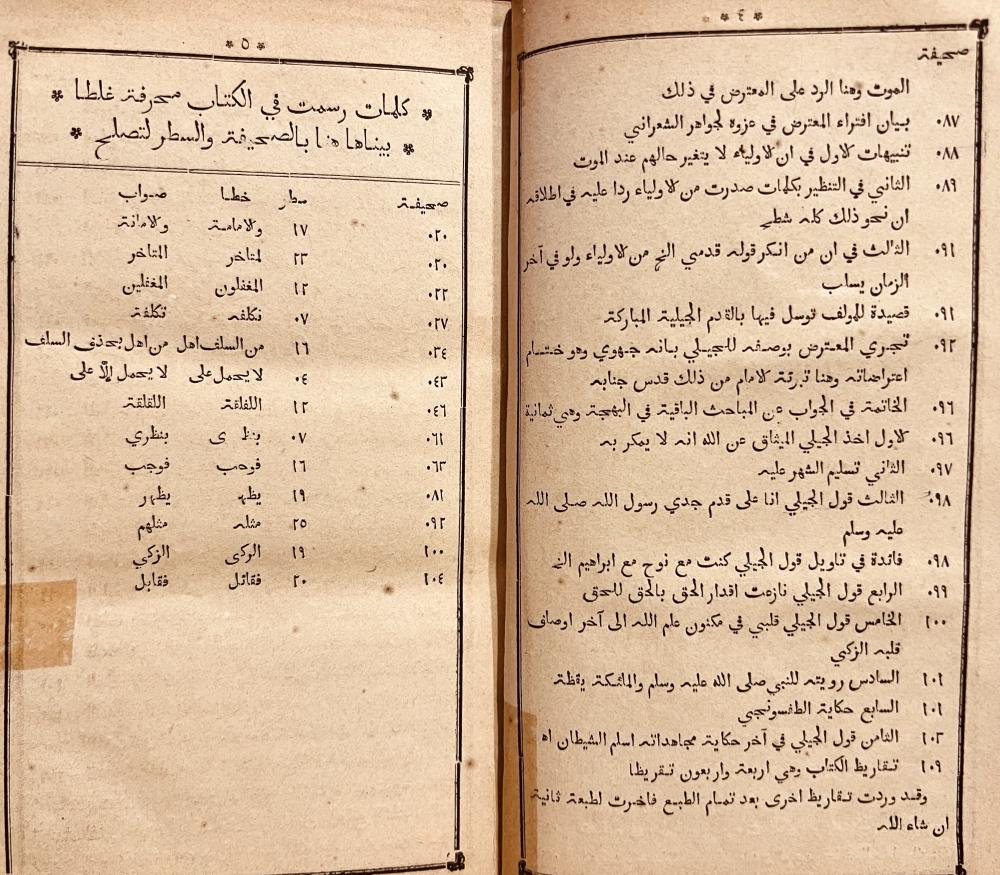 * ٤ *
صحيفة
الموت وهنا الرد على المعترض في ذلك
٠٨٧ بيان افتراء المعترض في عزوه لجواهر الشعراني
٠٨٨ تنبيهات لاول في ان لاولياء لا يتغير حالهم عند الموت
٠٨٩ الثاني في التنظير بكلمات صدرت من لاولياء ردا عليه في اطلاقه
ان نحو ذلك كله شطح
٠٩١ الثالث في ان من انكر قوله قدمي الخ من لاولياء ولو في آخر
الزمان يسلب
٠٩١ قصيدة للمولف توسل فيها بالقدم الجيلية المباركة
٠٩٢ تجري المعترض بوصفه للجيلي بانه جهوي وهو ختام
اعتراضاته وهنا تبرئة لامام من ذلك قدس جنابه
٠٩٦ الخاتمة في الجواب عن المباحث الباقية في البهجة وهي ثمانية
٠٩٦ لاول اخذ الجيلي الميثاق عن الله انه لا يمكر به
٠٩٧ الثاني تسليم الشهر عليه
٠٩٨ الثالث قول الجيلي انا على قدم جدي رسول الله صلى الله
عليه وسلم
٠٩٨ فائدة في تاويل قول الجيلي كنت مع نوح مع ابراهيم الخ
٠٩٩ الرابع قول الجيلي نازعت اقدار الحق بالحق للحق
١٠٠ الخامس قول الجيلي قلبي في مكنون علم الله الى آخر اوصاف
قلبه الزكي
١٠١ السادس رويته للنبي صلى الله عليه وسلم والملئكة يقظة
١٠١ السابع حكاية الطفسونجي
١٠٣ الثامن قول الجيلي في آخر حكاية مجاهداته اسلم الشيطان اه
١٠٩ تقاريظ الكتاب وهي اربعة واربعون تقريظا
وقد وردت تقاريظ اخرى بعد تمام الطبع فاخرت لطبعة ثانية
ان شاء الله
* ٥ *
* كلمات رسمت في الكتاب محرفة غلطا *
* بيناها هنا بالصحيفة والسطر لتصلح *
صحيفة سطر خطا صواب
٠٢٠ ١٧ ولامامة ولامانة
٠٢٠ ٢٣ لمتاخر المتاخر
٠٢٢ ١٢ المغفلون المغفلين
٠٢٧ ٠٧ نكلفه تكلفة
٠٣٤ ١٦ من السلف اهل من اهل بحذف السلف
٠٤٣ ٠٤ لا يحمل على لا يحمل الا على
٠٤٦ ١٢ اللفاقة اللقلقة
٠٦١ ٠٧ بنظ ى بنظري
٠٦٣ ١٦ فوحب فوجب
٠٨١ ١٩ يظهـ يظهر
٠٩٢ ٢٥ مثله مثلهم
١٠٠ ١٩ الركى الزكي
١٠٤ ٢٠ فقائل فقابل